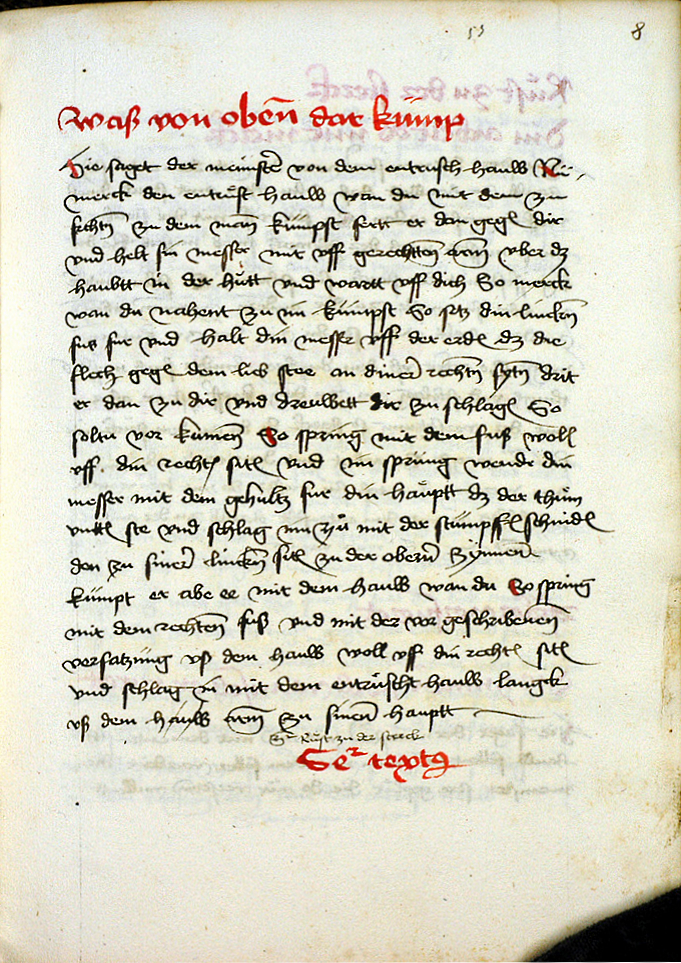 53
8
waß von oben dar kümp
Hie saget der meinster von dem entrüsch hauw Nü
merck den entrüst hauw wan du mit dem zu
fechtn zu dem man kümpst stett er dan gegen dir
vnd helt sin messer mit vff gerechtten arm vber dz
haubtt in der hütt vnd wartt vff dich So merck
wan du nahent zu im kümpst So setz din lincken
fus fur vnd halt din messer vff der erden dz die
flech gegen dem lieb stee an diner rechtn sytn drit
er dan zu dir vnd dreuwett dir zu schlagen So
soltu vor kumen So spring mit dem fuß woll
vff din rechten siten vnd im sprüng wende din
messer mit dem gehultz fur din haüptt dz der thüm
vnden ste vnd schlag im zü mit der stümpffen schniden
den zu siner lincken siten zu der obern zynnen
kümpt er abe ee mit dem hauw wan du So spring
mit dem rechten fuß vnd mit der vor geschribenen
versatzüng vß dem hauw woll vff din rechten siten
vnd schlag in mit dem entrüscht hauw langk
vß dem hauw arm zu sinen hauptt
zu der sterck
Der text